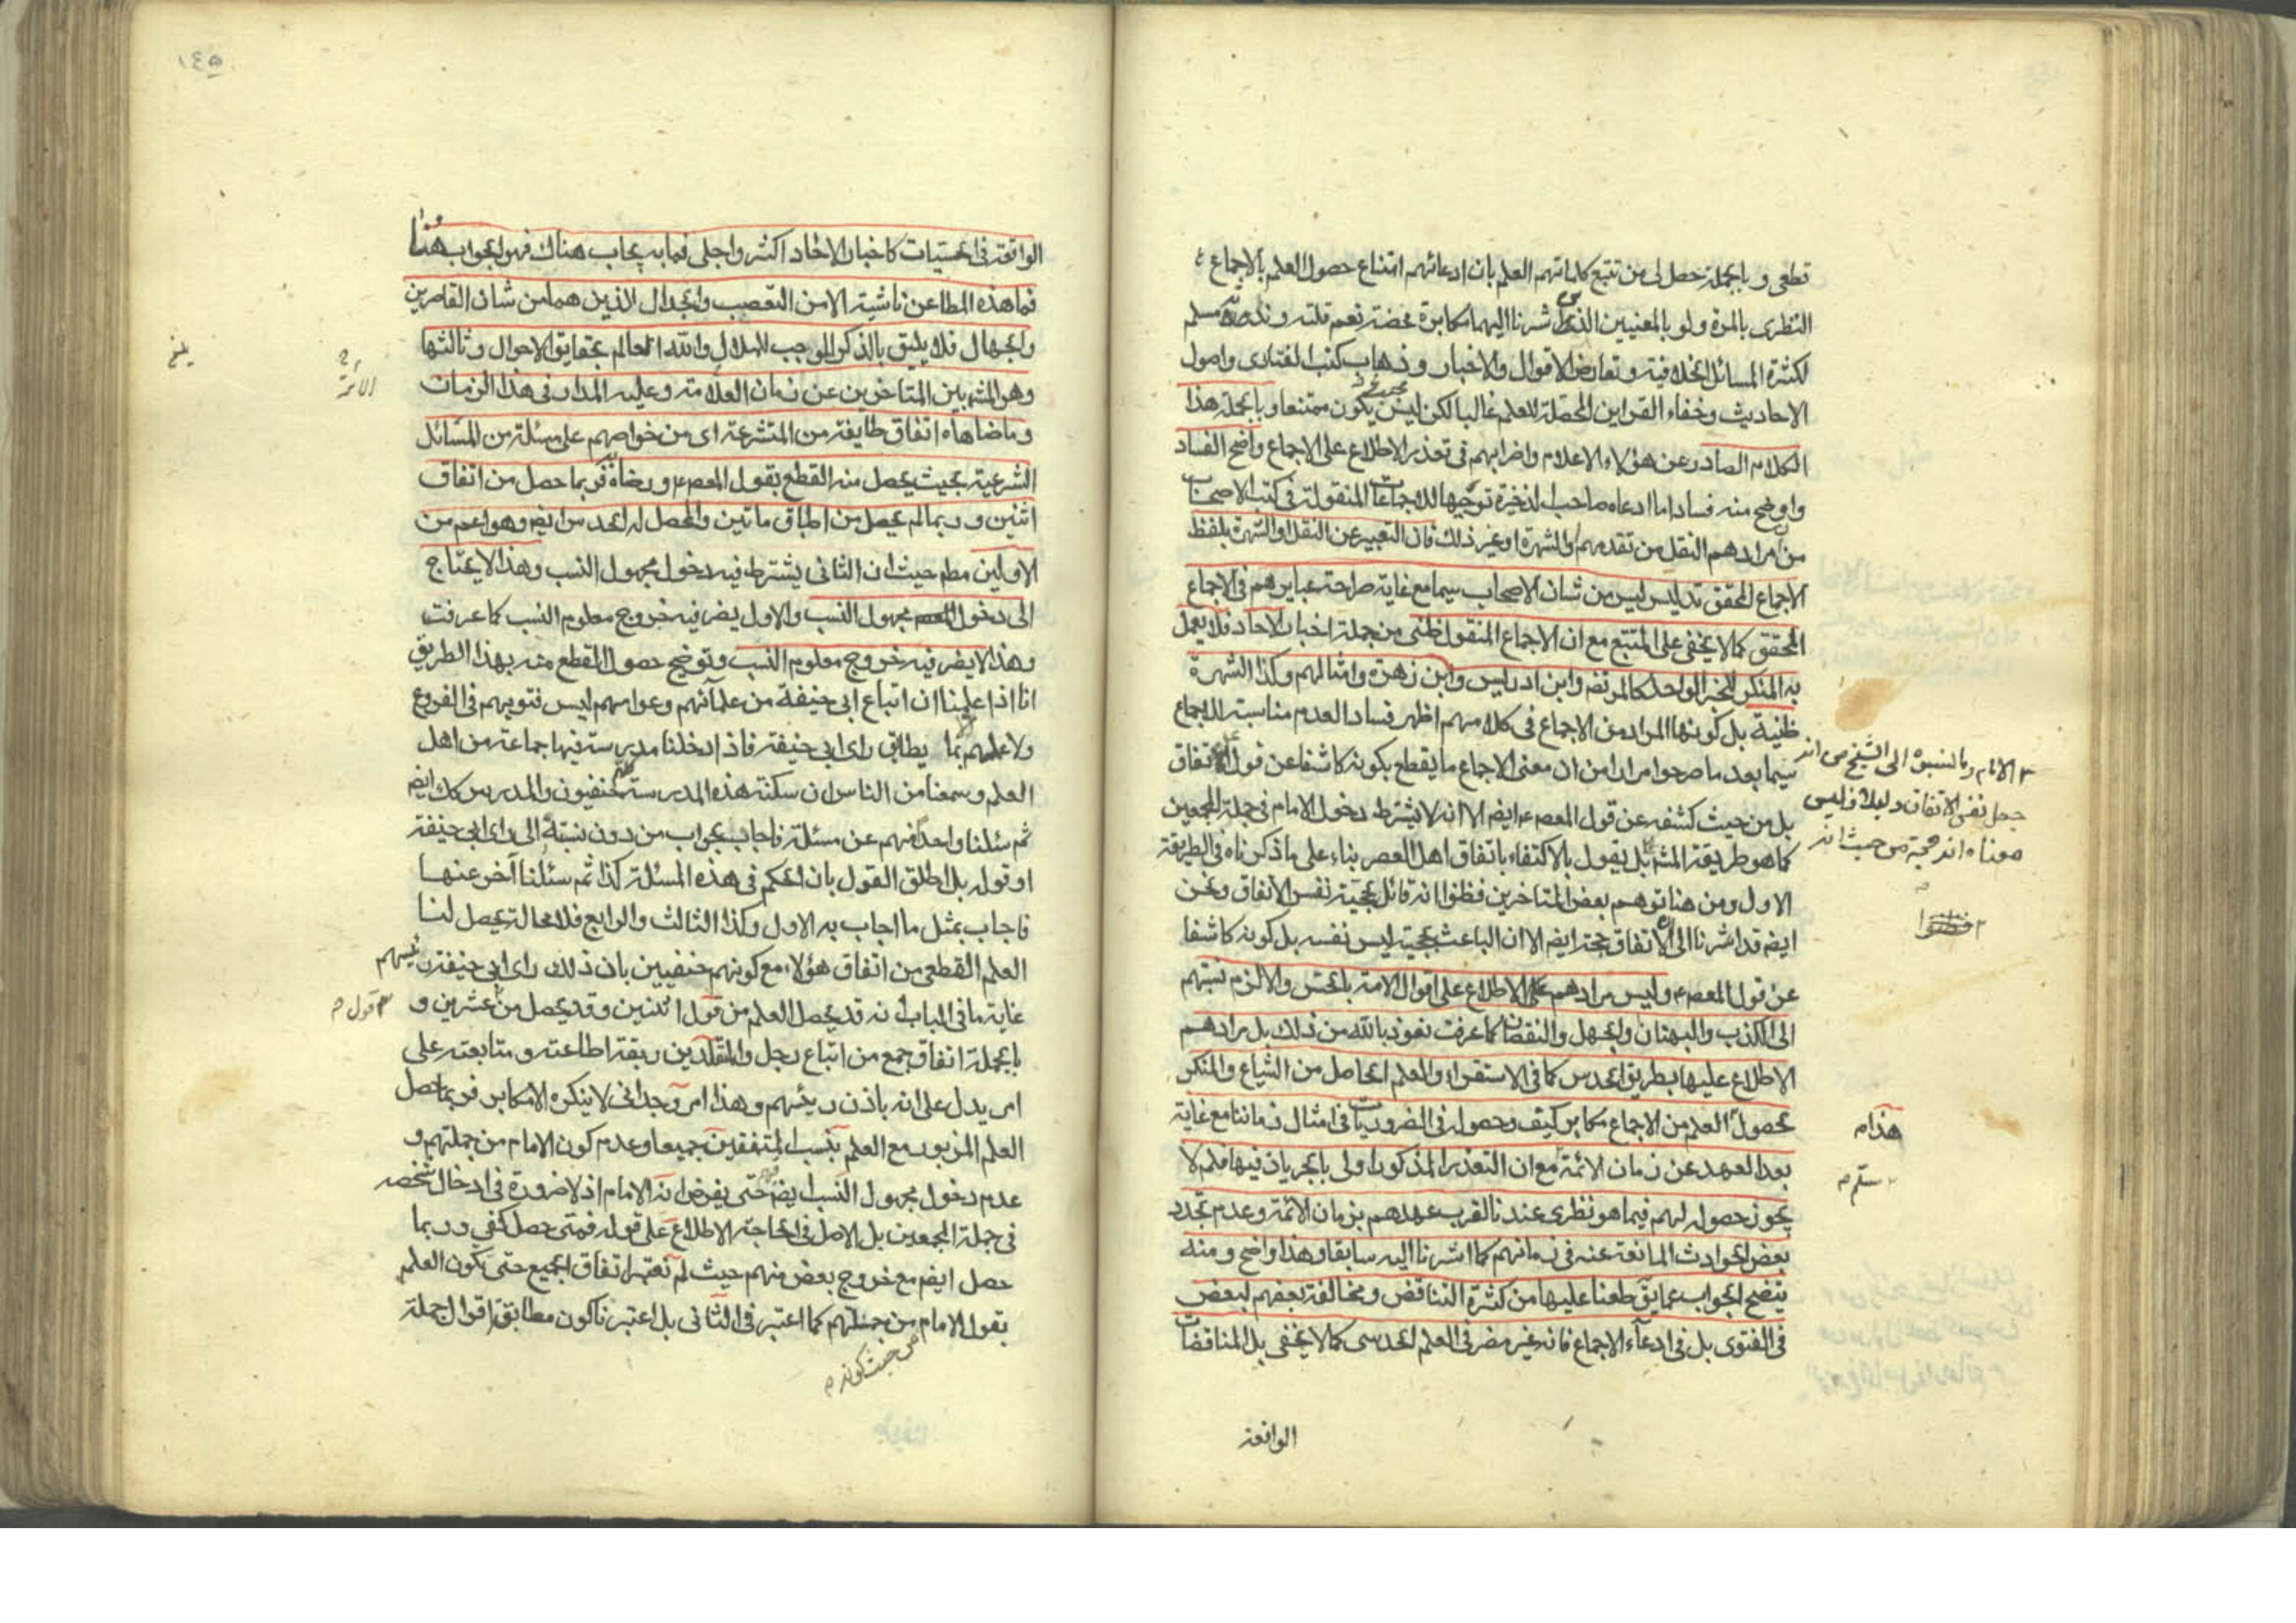 قطعى و بالجملة حصل لى من تتبع كلماتهم العلم بان ادعائهم امتناع حصول العلم بالاجماع
النظرى بالمرة ولو بالمعنيين الذى شرنا اليهما مكابرة محضة نعم قلته و ندرته مسلم
لكثرة المسائل الخلافية و تعارض الاقوال والاخبار و ذهاب كتب الفتاوى واصول
الاحاديث و خفاء القراين المحصلة للعلم غالبا لكن ليس يكون ممتنعا و بالجملة هذا
الكلام الصادر عن هؤلاء الاعلام واضرابهم فى تعذر الاطلاع على الاجماع واضح الفساد
و اوضح منه فسادا ما ادعاه صاحب الذخيرة توجيها للاجماعات المنقولة فى كتب الاصحاب
من ان مرادهم النقل من تقدمهم والشهرة او غير ذلك فان التعبير عن النقل او الشهرة بلفظ
الاجماع المحقق تدليس ليس من شان الاصحاب سيما مع غاية صراحة عبايرهم فى الاجماع
المحقق كما لا يخفى على المتتبع مع ان الاجماع المنقول ظنى من جملة اخبار الاحاد فلا يعمل
به المنكر للخبر الواحد كالمرتضى وابن ادريس وابن زهرة وامثالهم وكذا الشهرة
ظنية بل كونها المراد من الاجماع فى كلامهم اظهر فسادا لعدم مناسبته للاجماع
سيما بعد ما صرحوا مرارا من ان معنى الاجماع ما يقطع بكونه كاشفا عن قول الاتفاق
٣ الامام و بالنسبة الى الشيخ من انه
جعل نفس الاتفاق دليلا و ليس
معناه انه حجة من حيث انه
بل من حيث كشفه عن قول المعصوم ايضا الا انه لا يشترط دخول الامام فى جملة المجمعين
كما هو طريقة المشهور بل يقول بالاكتفاء باتفاق اهل العصر بناء على ما ذكرناه فى الطريقة
الاول ومن هنا توهم بعض المتاخرين فظنوا انه قائل بحجية نفس الاتفاق ونحن
ايضا قد اشرنا الى الاتفاق حجة ايضا الا ان الباعث بحجيته ليس نفسه بل كونه كاشفا
عن قول المعصوم وليس مرادهم الاطلاع على اقوال الامة بالحس والا لزم نسبتهم
الى الكذب والبهتان والجهل والنقصان كما عرفت نعوذ بالله من ذلك بل مرادهم
الاطلاع عليها بطريق الحدس كما فى الاستقراء والعلم الحاصل من الشياع والمنكر
لحصول العلم من الاجماع مكابر كيف و حصوله فى الضروريات فى امثال زماننا مع غاية
هذا م
بعد العهد عن زمان الائمة مع ان التعذر المذكور اولى بالجريان فيها فلم لا
سلم م
يجوز حصوله لهم فيما هو نظرى عندنا لقرب عهدهم بزمان الائمة وعدم تجدد
بعض الحوادث المانعة عنه فى زمانهم كما اشرنا اليه سابقا و هذا واضح و منه
يتضح الجواب عما يق طعنا عليها من كثرة التناقض و مخالفة بعضهم لبعض
فى الفتوى بل فى ادعاء الاجماع فانه غير مضر فى العلم الحدسى كما لا يخفى بل المناقضات
الواقعة
١٤٥
الواقعة فى الحسيات كاخبار الاحاد اكثر واجلى فما به يجاب هناك فهو الجواب هنا
فما هذه المطاعن ناشية الا من التعصب والجدال الذين هما من شان القاصرين
والجهال فلا يليق بالذكر الموجب للملال والله العالم بحقايق الاحوال و ثالثها
وهو المشهور بين المتاخرين عن زمان العلامة وعليه المدار فى هذا الزمان
وما ضاهاه اتفاق طايفة من المتشرعة اى من خواصهم على مسئلة من المسائل
الشرعية بحيث يحصل منه القطع بقول المعصوم و رضاه فربما حصل من اتفاق
اثنين و ربما لم يحصل من اطباق ماتين والمحصل له الحدس ايضا وهو اعم من
الاولين مطم حيث ان الثانى يشترط فيه دخول مجهول النسب وهذا لا يحتاج
الى دخول مجهول النسب والاول يضر فيه خروج معلوم النسب كما عرفت
وهذا لا يضر فيه خروج معلوم النسب وتوضيح حصول القطع منه بهذا الطريق
انا اذا علمنا ان اتباع ابى حنيفة من علمائهم وعوامهم ليس فتويهم فى الفروع
ولا عملهم بما يطابق راى ابى حنيفة فاذا دخلنا مدرسة فيها جماعة من اهل
العلم و سمعنا من الناس ان سكنة هذه المدرسة حنفيون والمدرس كك ايضا
ثم سئلنا واحدا منهم عن مسئلة فاجاب بجواب من دون نسبة الى راى ابى حنيفة
او قوله بل اطلق القول بان الحكم فى هذه المسئلة كذا ثم سئلنا آخر عنها
فاجاب بمثل ما اجاب به الاول وكذا الثالث والرابع فلا محالة يحصل لنا
العلم القطعى من اتفاق هؤلاء مع كونهم حنفيين بان ذلك راى ابى حنيفة رئيسهم
غاية ما فى الباب انه قد يحصل العلم من قول اثنين و قد يحصل من عشرين و
قول م
بالجملة اتفاق جمع من اتباع رجل والمتقلدين ربقة اطاعته و متابعته على
امر يدل على انه باذن رئيسهم وهذا امر وجدانى لا ينكره الا مكابر فربما حصل
العلم المزبور مع العلم بنسب المتفقين جميعا وعدم كون الامام من جملتهم و
عدم دخول مجهول النسب ايضا حتى يفرض انه الامام اذ لا ضرورة فى ادخال شخصه
فى جملة المجمعين بل الاصل فى الحاجة الاطلاع على قوله فمتى حصل كفى و ربما
حصل ايضا مع خروج بعض منهم حيث لم نعتبر اتفاق الجميع حتى يكون العلم
بقول الامام من جملتهم كما اعتبر فى الثانى بل اعتبرنا كون مطابق اقوال جملة
من حيث كونه م